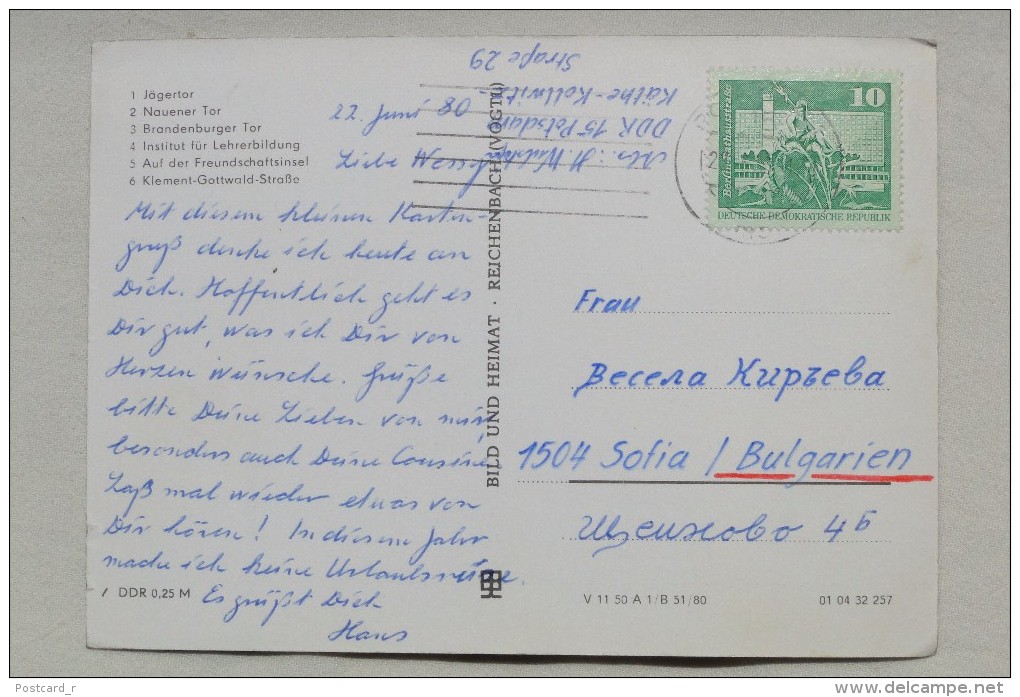 1 Jägertor
2 Nauener Tor
3 Brandenburger Tor
4 Institut für Lehrerbildung
5 Auf der Freundschaftsinsel
6 Klement-Gottwald-Straße
22. Juni 80
Liebe
Mit diesem kleinen Karten-
gruß denke ich heute an
Dich. Hoffentlich geht es
Dir gut, was ich Dir von
Herzen wünsche. Grüße
bitte Deine Lieben von mir,
besonders auch Deine Cousine
Laß mal wieder etwas von
Dir hören! In diesem Jahr
mache ich keine Urlaubsreise.
Es grüßt Dich
Hans
DDR 0,25 M
BILD UND HEIMAT · REICHENBACH (VOGTL)
Abs.: H.
DDR 15 Potsdam
Käthe-Kollwitz-
Straße 29
10
Berlin, Rathausstraße
DEUTSCHE DEMOKRATISCHE REPUBLIK
Frau
Весела Киръева
1504 Sofia / Bulgarien
4Б
V 11 50 A 1/B 51/80
01 04 32 257
Postcard_r
www.delcampe.net